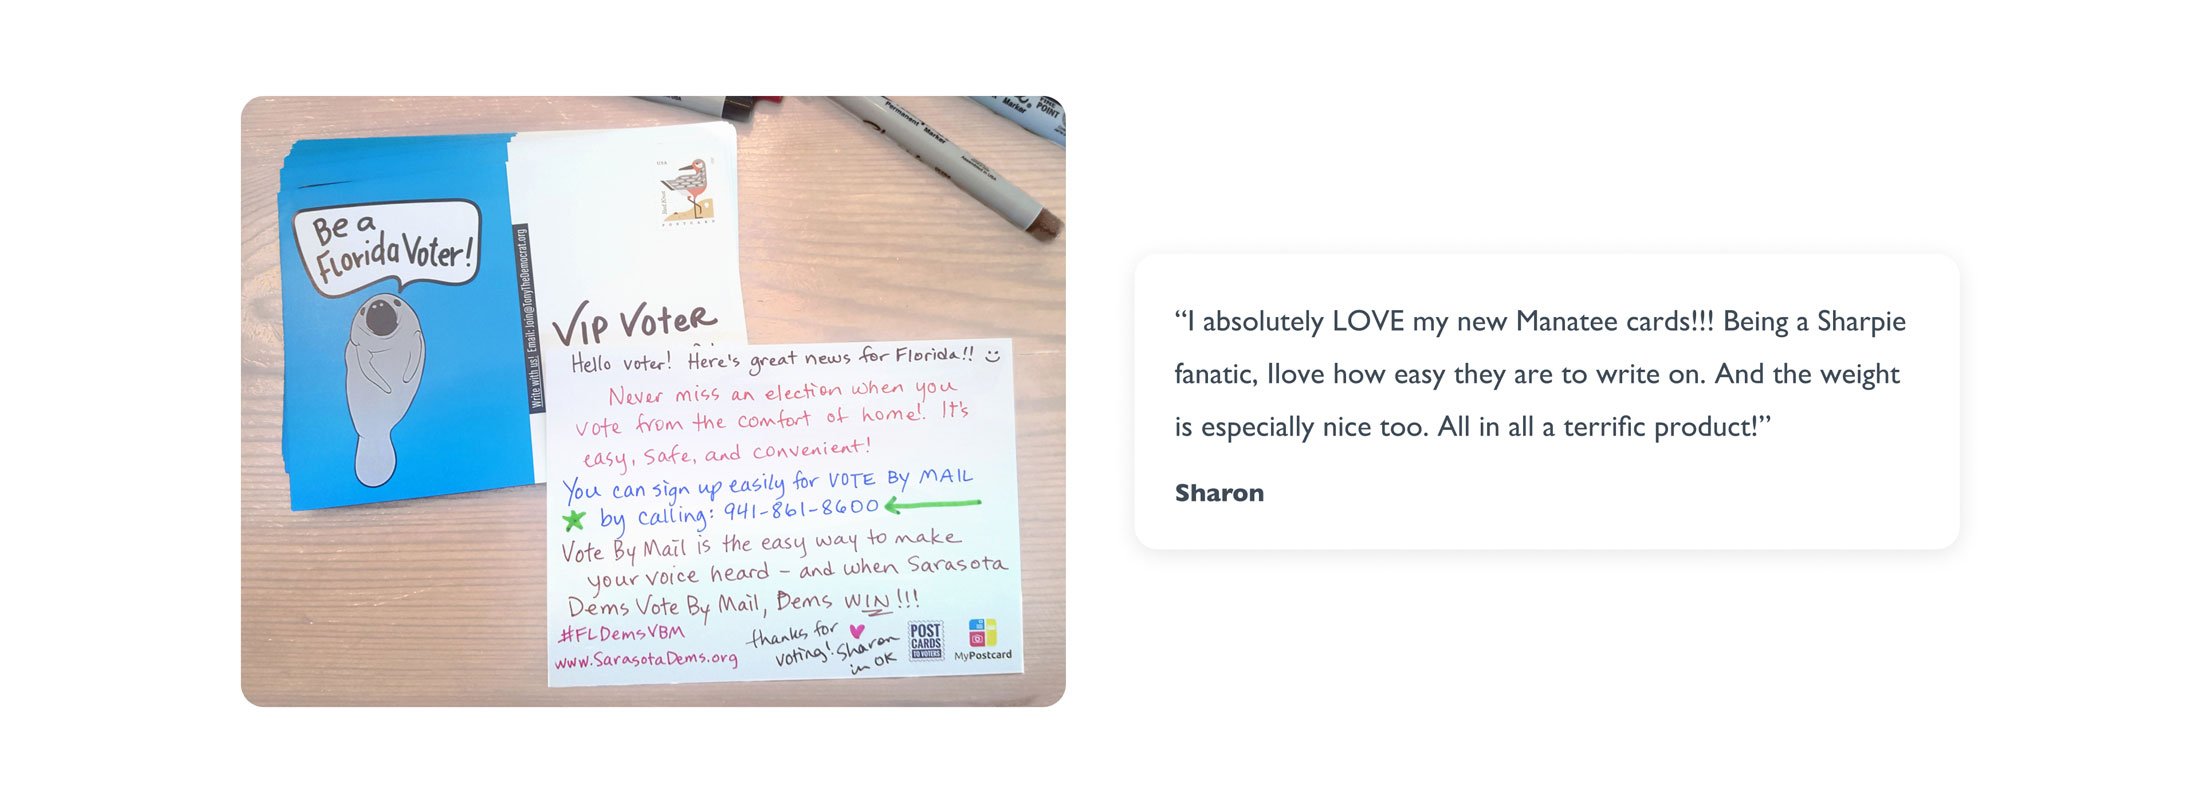 Be a
Florida Voter!
Write with us! Email: Join@TonyTheDemocrat.org
USA
Red Knot
POSTCARD
VIP VOTER
Permanent Marker
FINE
POINT
Marker
Hello voter! Here's great news for Florida!! :)
Never miss an election when you
vote from the comfort of home! It's
easy, safe, and convenient!
You can sign up easily for VOTE BY MAIL
by calling: 941-861-8600
Vote By Mail is the easy way to make
your voice heard – and when Sarasota
Dems Vote By Mail, Dems WIN!!!
#FLDemsVBM
www.SarasotaDems.org
thanks for
voting! Sharon
in OK
POST
CARDS
TO VOTERS
MyPostcard
“I absolutely LOVE my new Manatee cards!!! Being a Sharpie
fanatic, Ilove how easy they are to write on. And the weight
is especially nice too. All in all a terrific product!”
Sharon